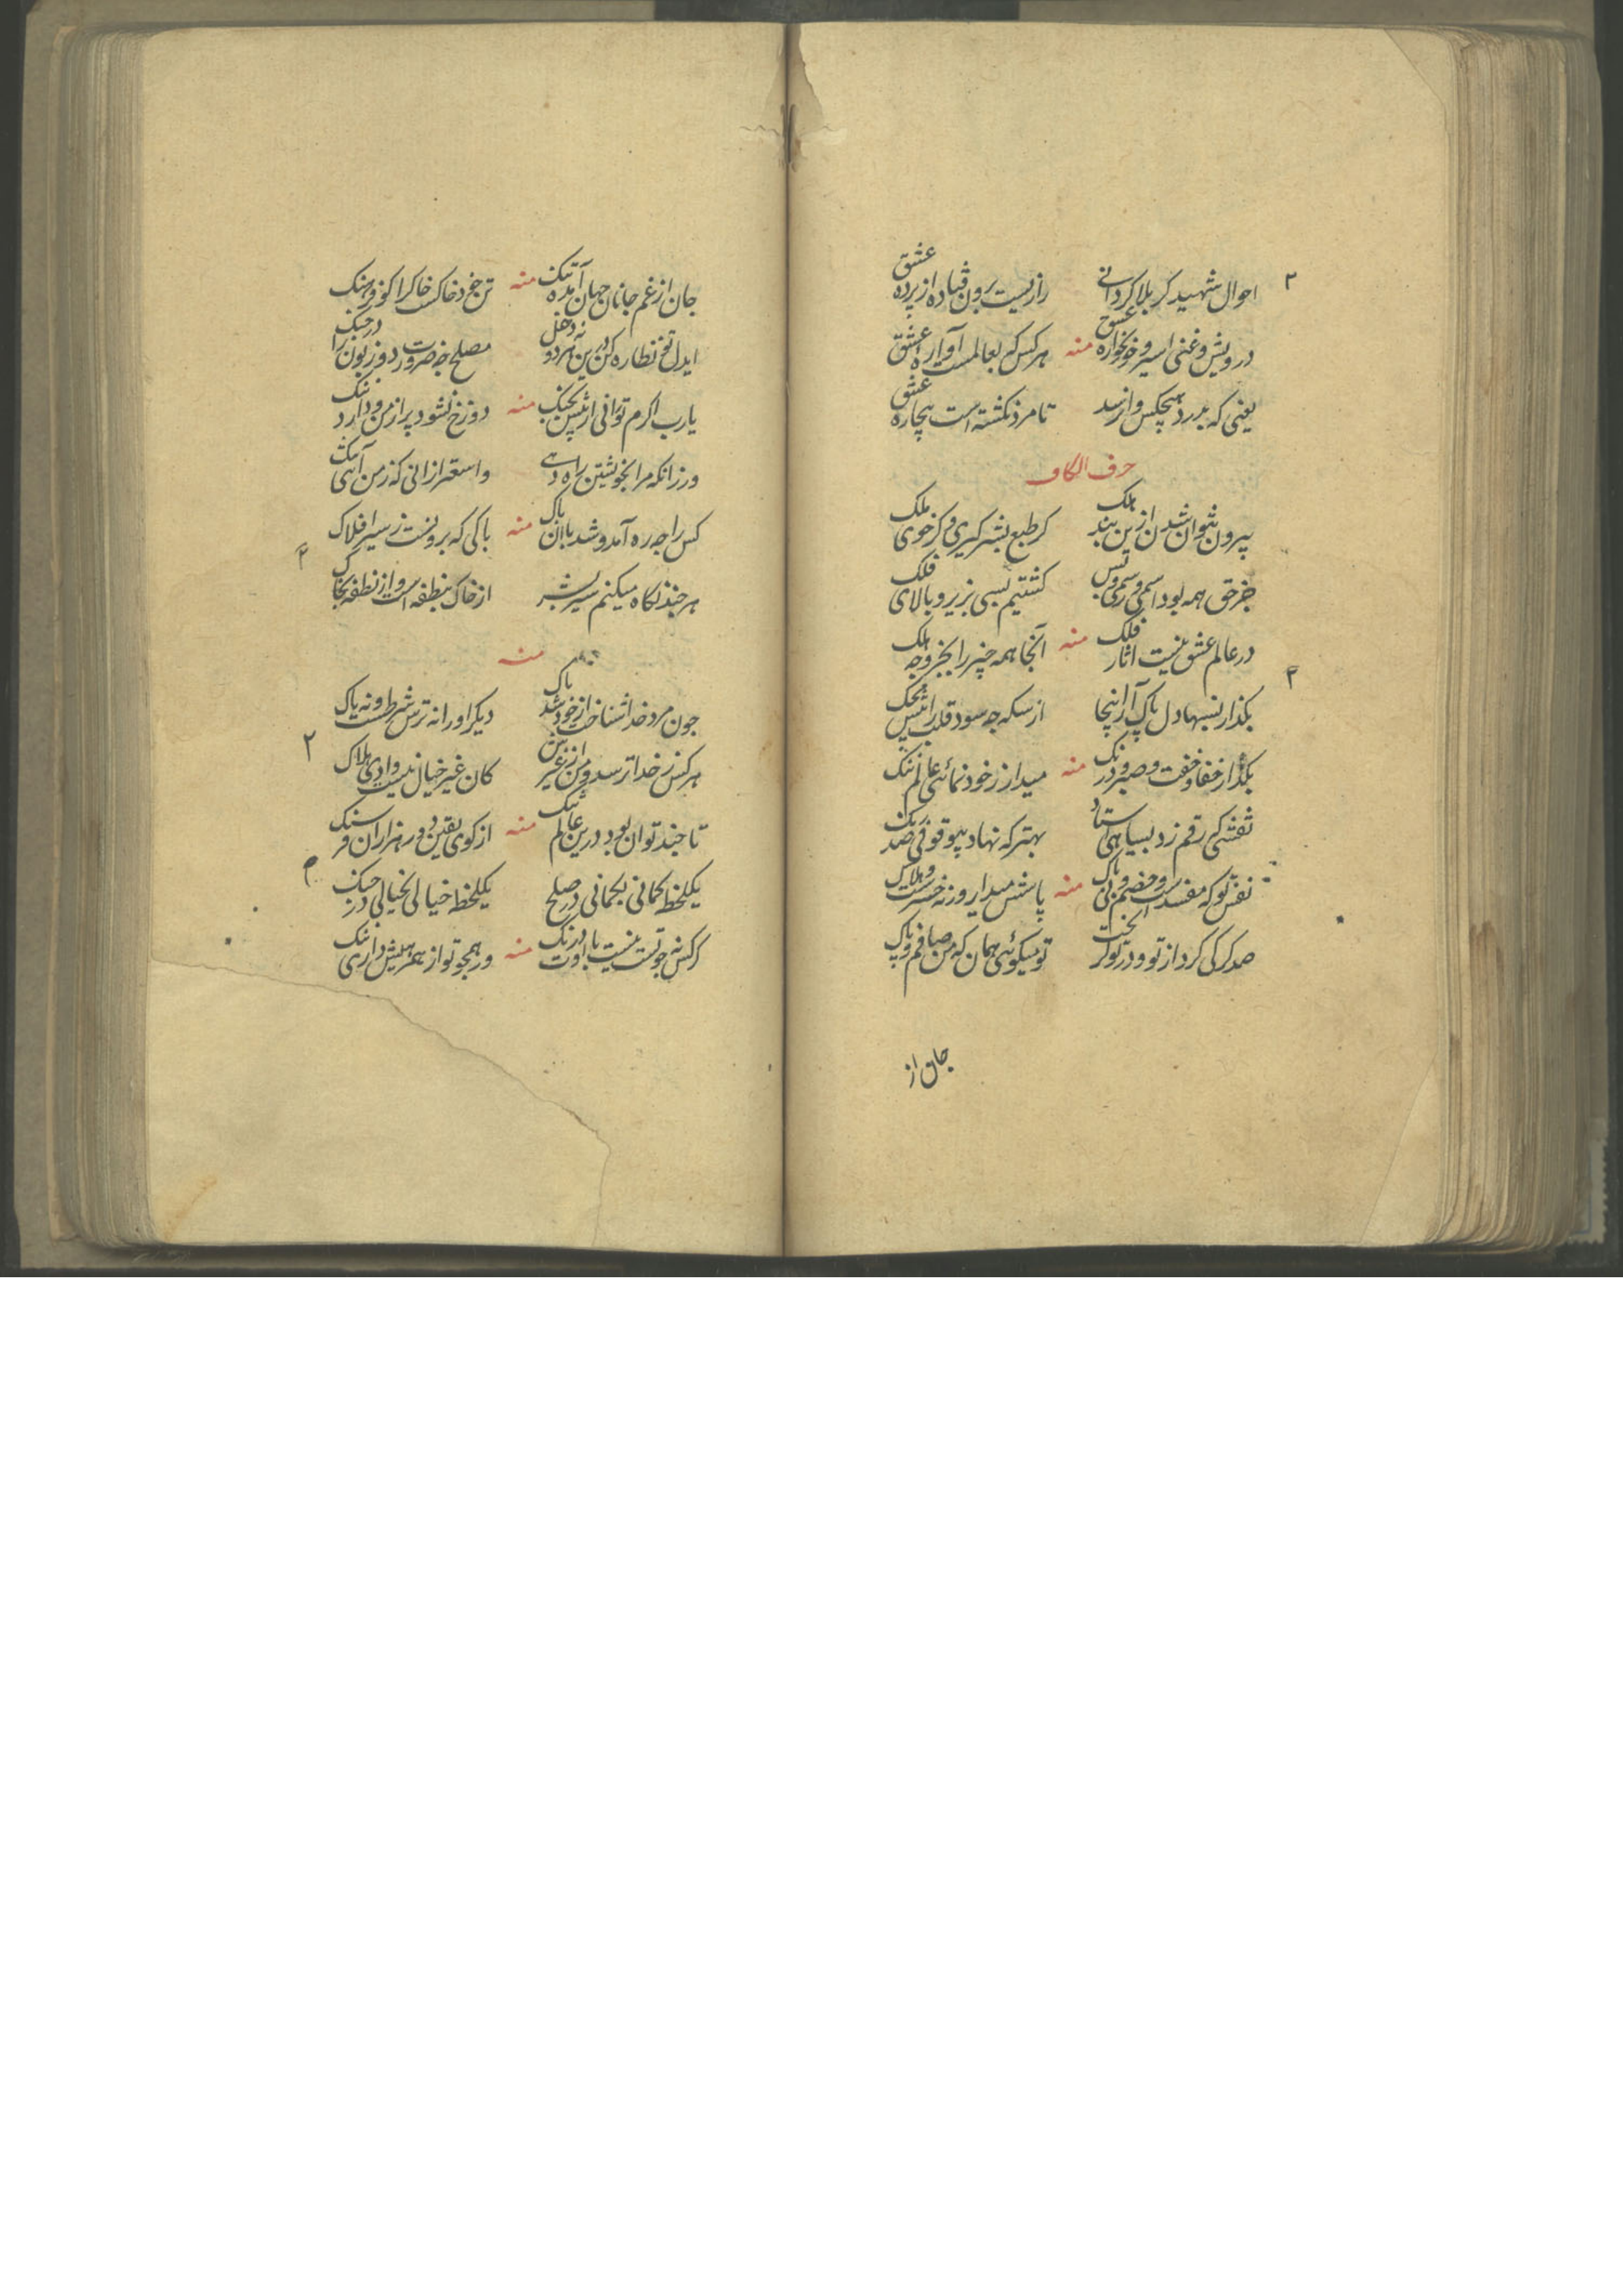 احوال شهید کربلا کر دانی رازیست برون فتاده از پرده عشق
درویش و غنی اسیر و خونخواره عشق منه هر کس که بعالمست آواره عشق
یعنی که بدرد هیچکس وا نرسد تا مرد نکشته است بیچاره عشق
حرف الکاف
بیرون نتوان شدن ازین بند هلک کر طبع بشر کیری و کر خوی ملک
جز حق همه بود اسمی و رسمی و بس کشتیم بسی بزیر و بالای فلک
در عالم عشق نیست آثار فلک منه آنجا همه چیز را بجز وجه هلک
بکذار نسبها دل پاک آر اینجا از سکه چه سود قلب را پیش محک
بکذار خفا و خفت و صبر و درنک منه میدار ز خود نمائی عالم ننک
نقشی که رقم زد بسیاهی استاد بهتر که نهاد بیوقوفی صد رنک
نفس تو که مفسدست و خصم بی باک منه پاسش میدار روز و شب
صد کرکی کرد از تو و در تو کریخت تو میکوئی همان که من صافم و پاک
جان از
جان از غم جانان جهان آمده تنک منه تن خود خاکست خاک را کو فرهنک
ایدل تو نظاره کن درین هر دو نه دخل مصلح چه ضرورت دو زبون را در جنک
یا رب اکرم تو رانی از پیش بجنک منه دوزخ نشود پر از من و دارد ننک
ور زانکه مرا بخویشتن راه دهی وا سعتر ازانی که ز من آئی تنک
کس را چه ره آمد و شد با آن پاک منه پاکی که برونست ز سیر افلاک
هر چند نکاه میکنم سیر بشر از خاک بنطفه است و از نطفه بخاک
منه
چون مرد خدا شناخت از خود شد پاک دیکر او را نه ترس شرطست و نه باک
هر کس ز خدا ترسد و من از غیرش کان غیر خیال نیست وادی هلاک
تا چند توان بود درین عالم تنک منه از کوی یقین دور هزاران فرسنک
یکلحظه کمانی بکمانی در صلح یکلحظه خیالی بخیالی در جنک
کر کس نه چو تست نیست با او درنک منه ور همچو تو از همرهیش داری ننک